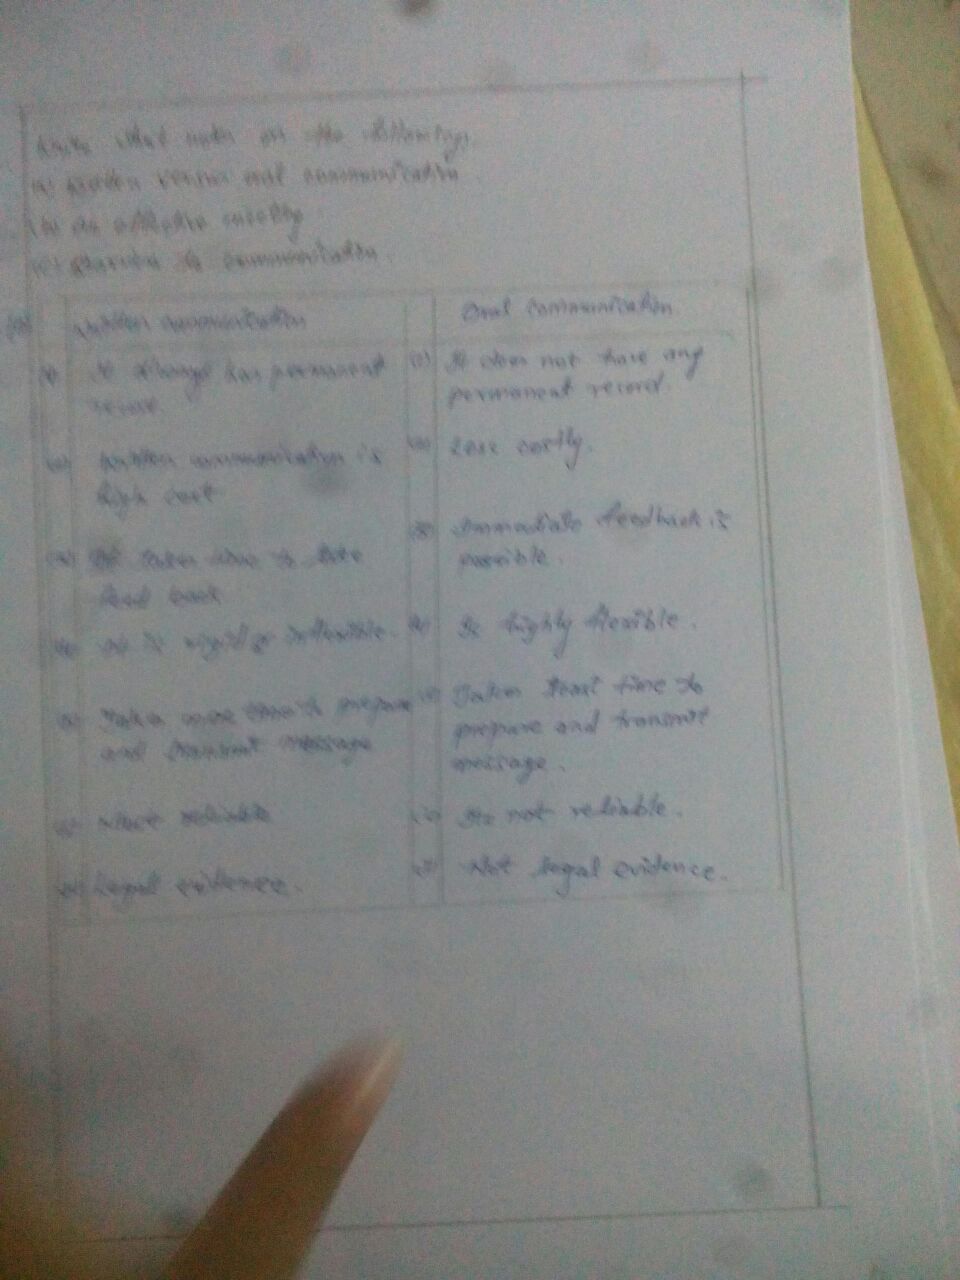 Write short notes on the following.
(a) written versus oral communication.
(b) An effective meeting
(c) Barriers to communication.
(a) Written communication
Oral communication
(i) It always has permanent
record.
(i) It does not have any
permanent record.
(ii) written communication is
high cost
(ii) Less costly.
(iii) It takes time to take
feed back
(iii) Immediate feedback is
possible.
(iv) It is rigid & inflexible.
(iv) Is highly flexible.
(v) Takes more time to prepare
and transmit message
(v) Takes least time to
prepare and transmit
message.
(vi) More reliable
(vi) Its not reliable.
(vii) Legal evidence.
Not legal evidence.